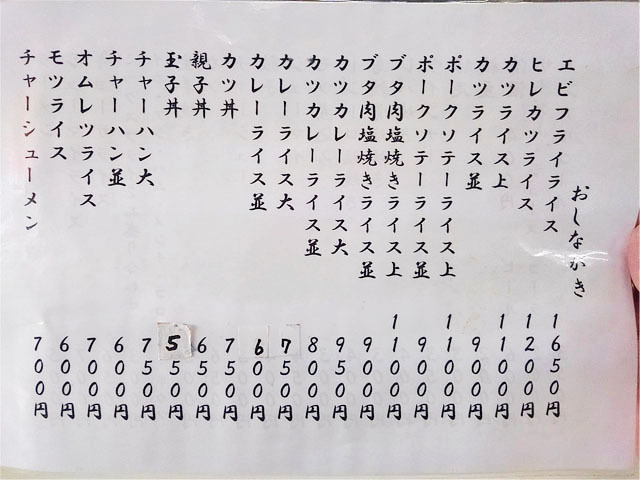 おしながき
エビフライライス 1650円
ヒレカツライス 1200円
カツライス上 1100円
カツライス並 900円
ポークソテーライス上 1100円
ポークソテーライス並 900円
ブタ肉塩焼きライス上 1100円
ブタ肉塩焼きライス並 900円
カツカレーライス大 950円
カツカレーライス並 800円
カレーライス大 750円
カレーライス並 600円
カツ丼 750円
親子丼 650円
玉子丼 550円
チャーハン大 750円
チャーハン並 600円
オムレツライス 700円
モツライス 600円
チャーシューメン 700円